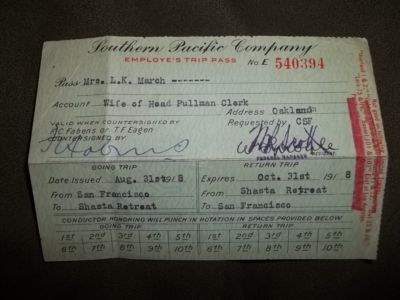 Southern Pacific Company
EMPLOYE'S TRIP PASS No E 540394
Pass Mrs. L.K. March -------
Account Wife of Head Pullman Clerk
Address Oakland
VALID WHEN COUNTERSIGNED BY Requested by CSF
P.C. Fabens or T.F. Eagen
COUNTERSIGNED BY
FEDERAL MANAGER
GOING TRIP RETURN TRIP
Date Issued Aug. 31st 191 8 Expires Oct. 31st 191 8
From San Francisco From Shasta Retreat
To Shasta Retreat To San Francisco
CONDUCTOR HONORING WILL PUNCH IN ROTATION IN SPACES PROVIDED BELOW.
GOING TRIP RETURN TRIP
1st 2nd 3rd 4th 5th 1st 2nd 3rd 4th 5th
6th 7th 8th 9th 10th 6th 7th 8th 9th 10th